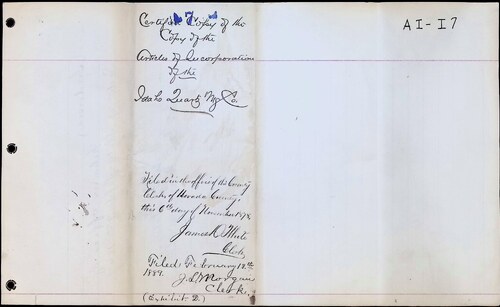 Certified Copy of the
17
Copy of the
Articles of Incorporation
of the
Idaho Quartz Mg Co.
Filed in the office of the County
Clerk of Nevada County,
this 6th day of November 187
James K.
Clerk
Filed February 12th
1889.
J. L. Morgan
Clerk.
(Exhibit D.)
AI-I7